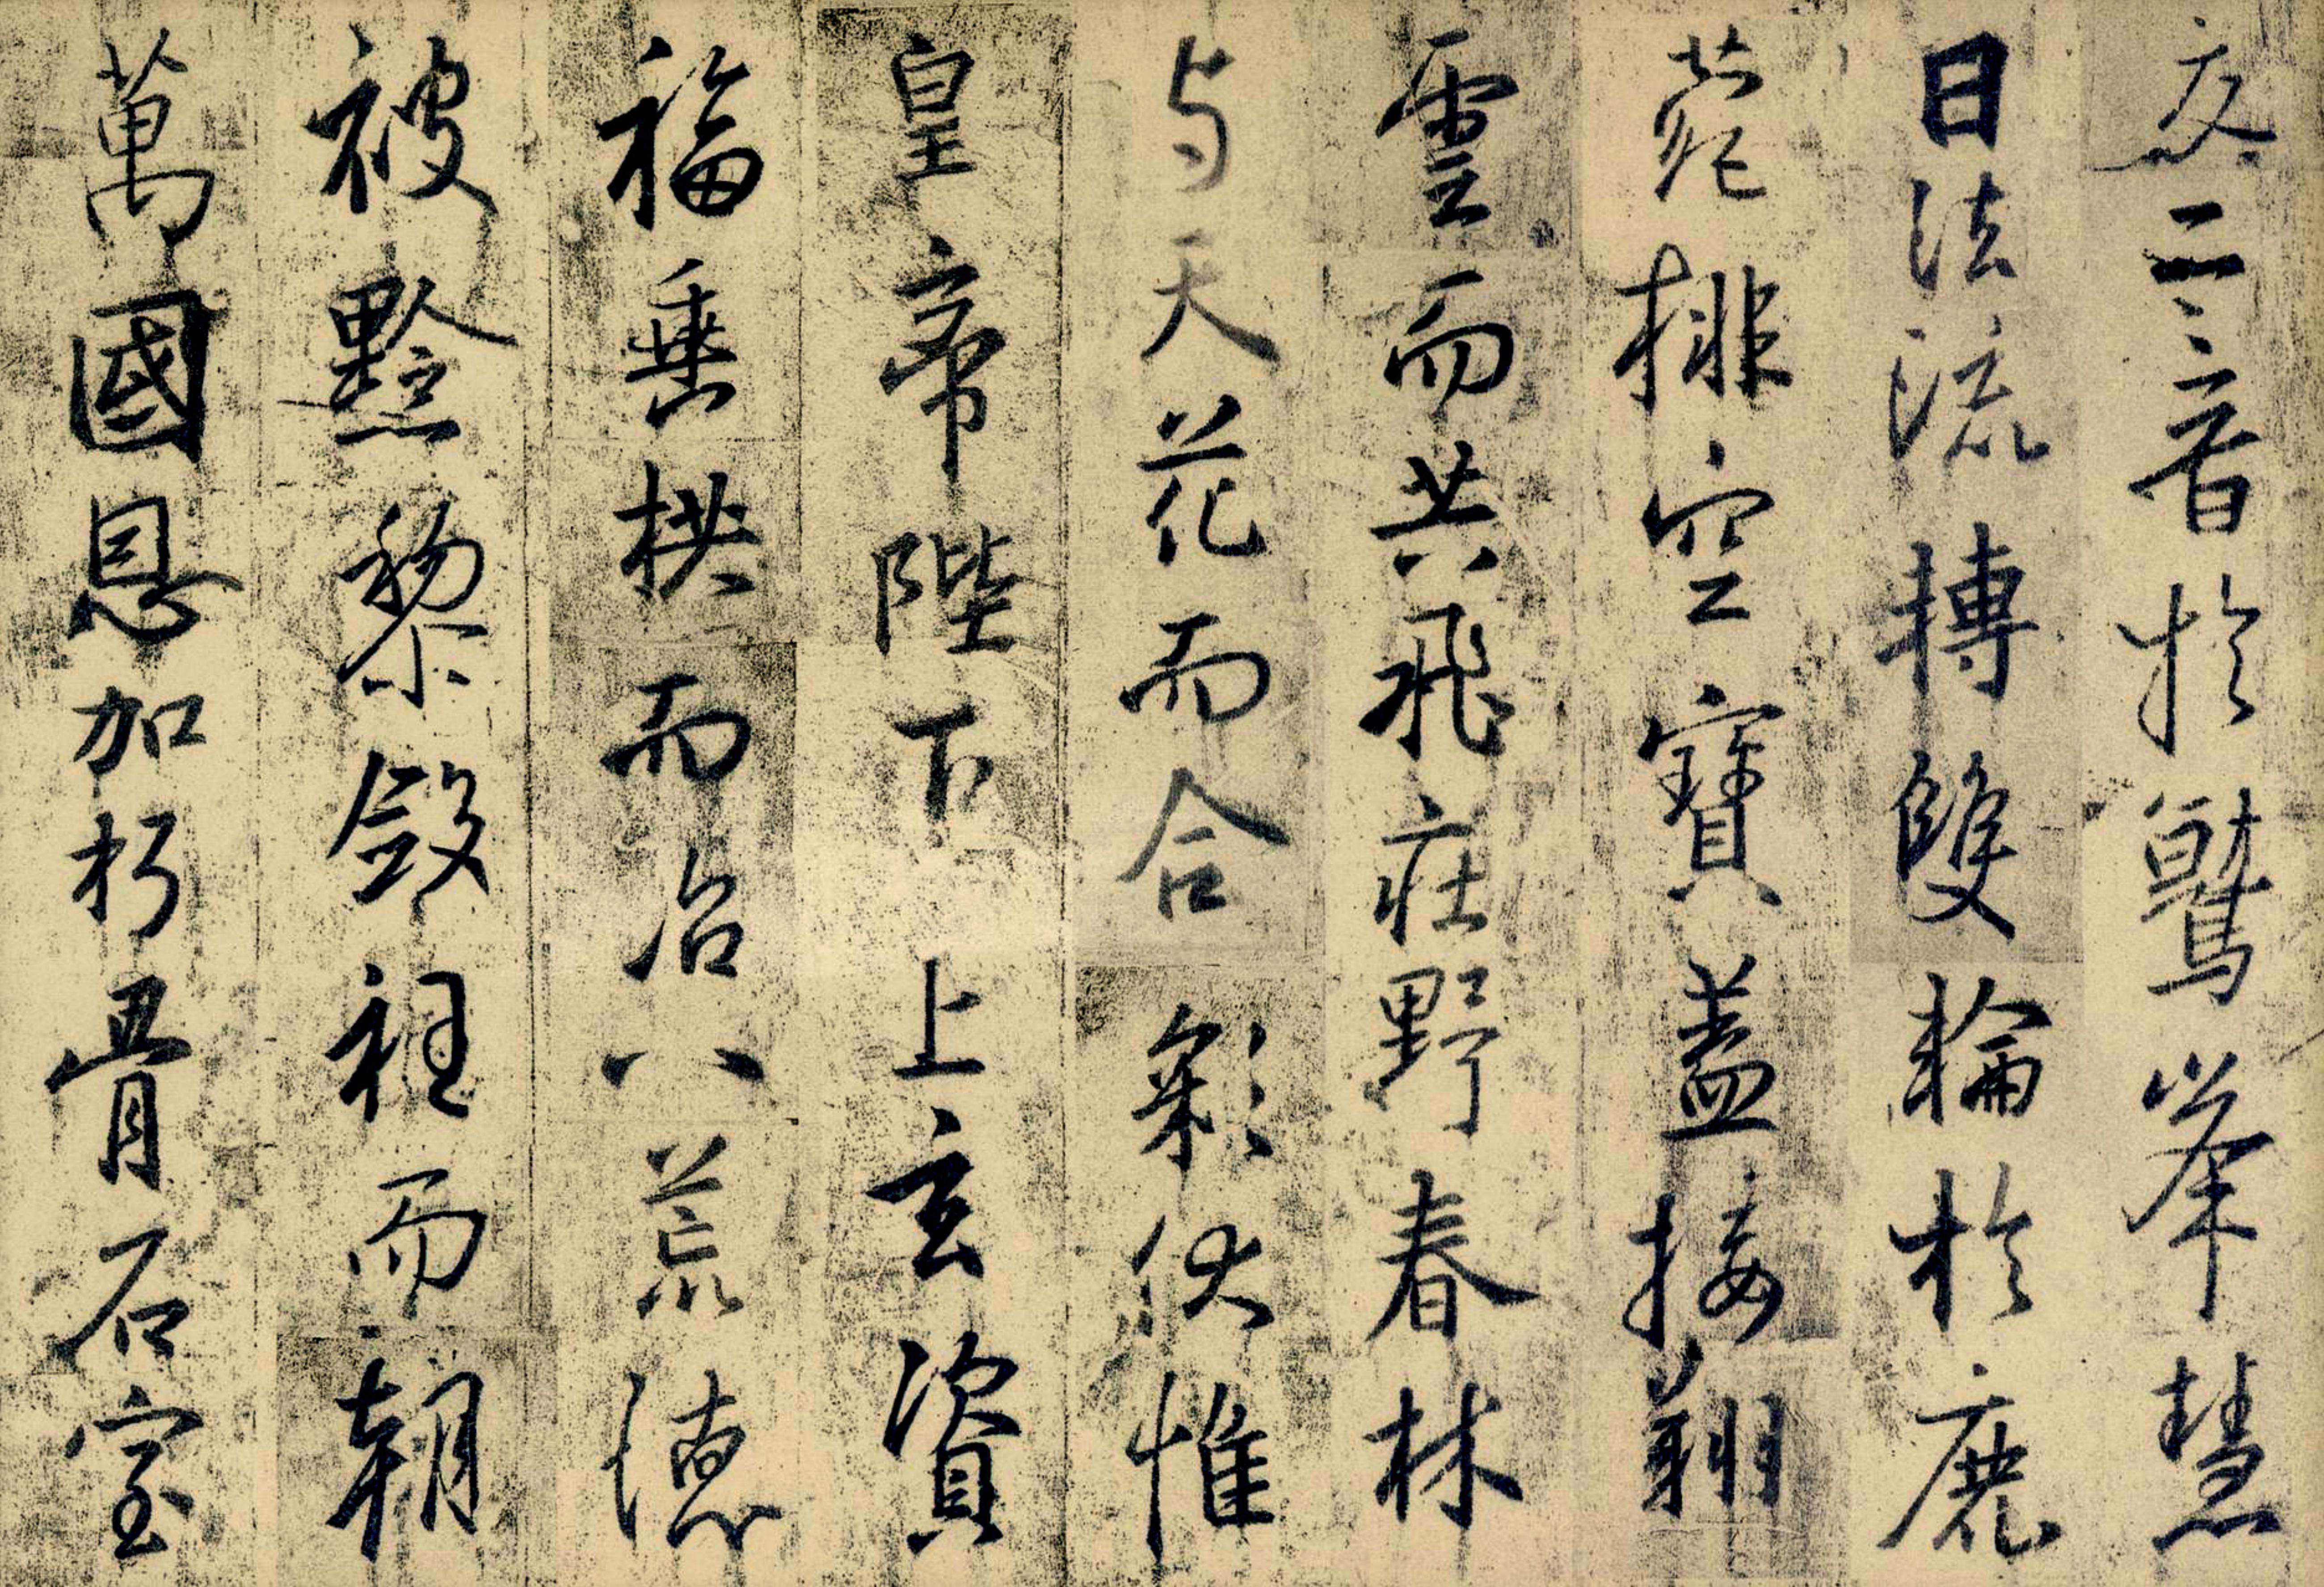 夜梵音於鷲峯慧
日法流轉雙輪於鹿
菀排空寶蓋接翔
雲而共飛莊野春林
与天花而合彩伏惟
皇帝陛下上玄資
福垂拱而治八荒德
被黔黎斂衽而朝
萬國恩加朽骨石室